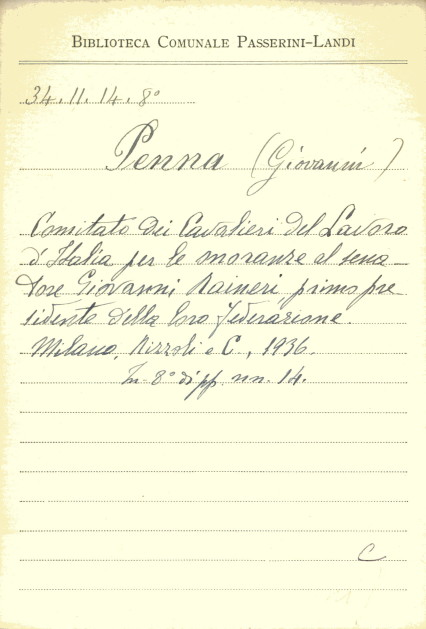 BIBLIOTECA COMUNALE PASSERINI-LANDI
34.11.14.8°
Penna (Giovanni)
Comitato dei Cavalieri del Lavoro
d'Italia per le onoranze al sena-
tore Giovanni Raineri primo pre-
sidente della loro Federazione.
Milano, Rizzoli e C., 1936.
In-8° di pp. nn. 14.
C